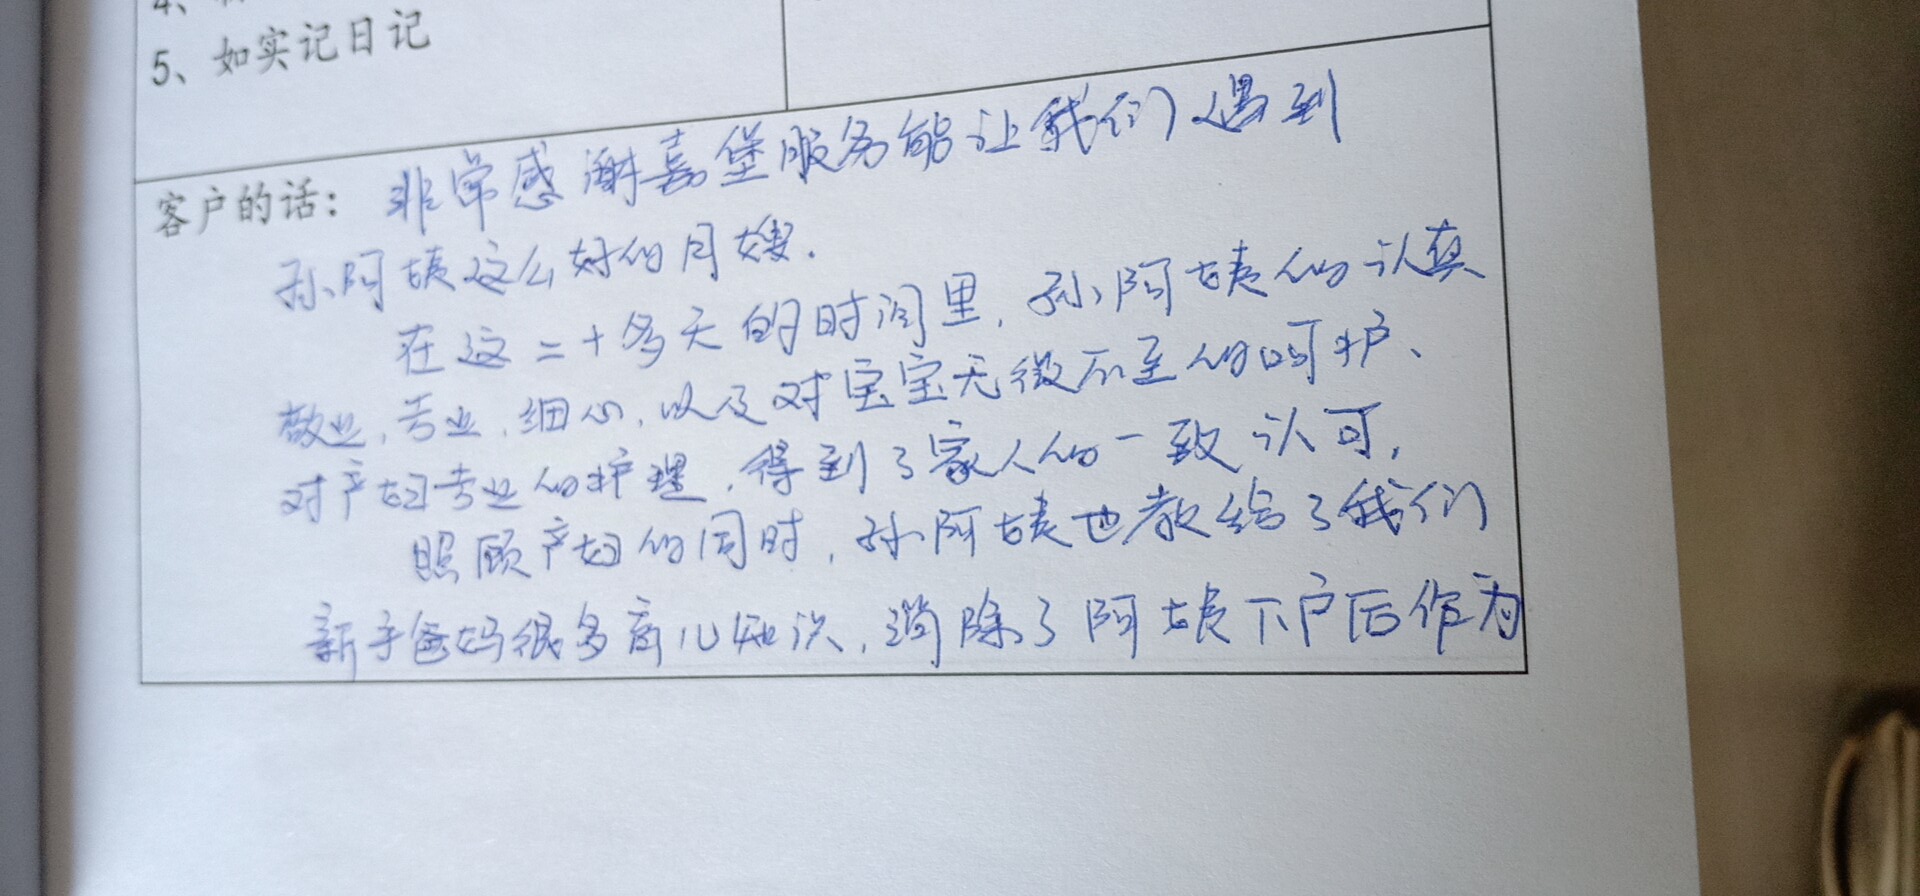 4、
5、如实记日记
客户的话：非常感谢嘉堡服务能让我们遇到
孙阿姨这么好的月嫂.
在这二十多天的时间里,孙阿姨的认真
敬业,专业,细心,以及对宝宝无微不至的呵护、
对产妇专业的护理,得到了家人的一致认可,
照顾产妇的同时,孙阿姨也教给了我们
新手爸妈很多育儿知识,消除了阿姨下户后作为